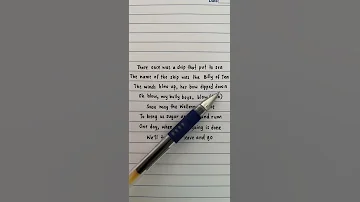 Date:
There once was a ship that put to sea
The name of the ship was the Billy of Tea
The winds blew up, her bow dipped down
Oh blow, my bully boys, blow
Soon may the Wellerman
To bring us sugar and rum
One day, when is done
We'll leave and go